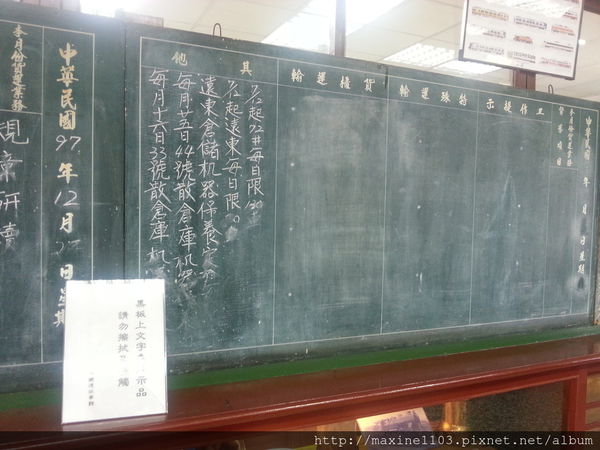 中華民國 年 月 日星期
本月份貨運業務
工作提示
特殊運輸
貨櫃運輸
其他
若起72#每日限20
若起遠東每日限。
遠東倉儲机器保養定於
每月廿五日44號散倉庫机器
每月十六日33號散倉庫机
中華民國 97 年 12 月 日星期
本月份貨運業務
規章研讀
黑板上文字 示品
請勿擦拭 觸
http://maxine1103.pixnet.net/album